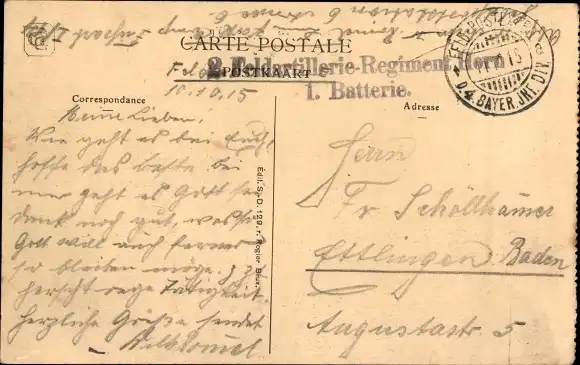 CARTE POSTALE
POSTKAART
2. Feldartillerie-Regiment Horn
1. Batterie.
FELDPOST
D. 4. BAYER. JNF. DIV.
10.10.15
Correspondance
Adresse
Meine Lieben.
Wie geht es bei Euch,
hoffe das beste bei
mir geht es Gott sei
dank noch gut, was
Gott will auch ferner
so bleiben möge. Z. Z.
herscht rege Tätigkeit.
Herzliche Grüße sendet
Édit. S.-D. 129, r. Rogier Brux.
Herrn
Fr Schöllhamer
Ettlingen Baden
Augustastr 5